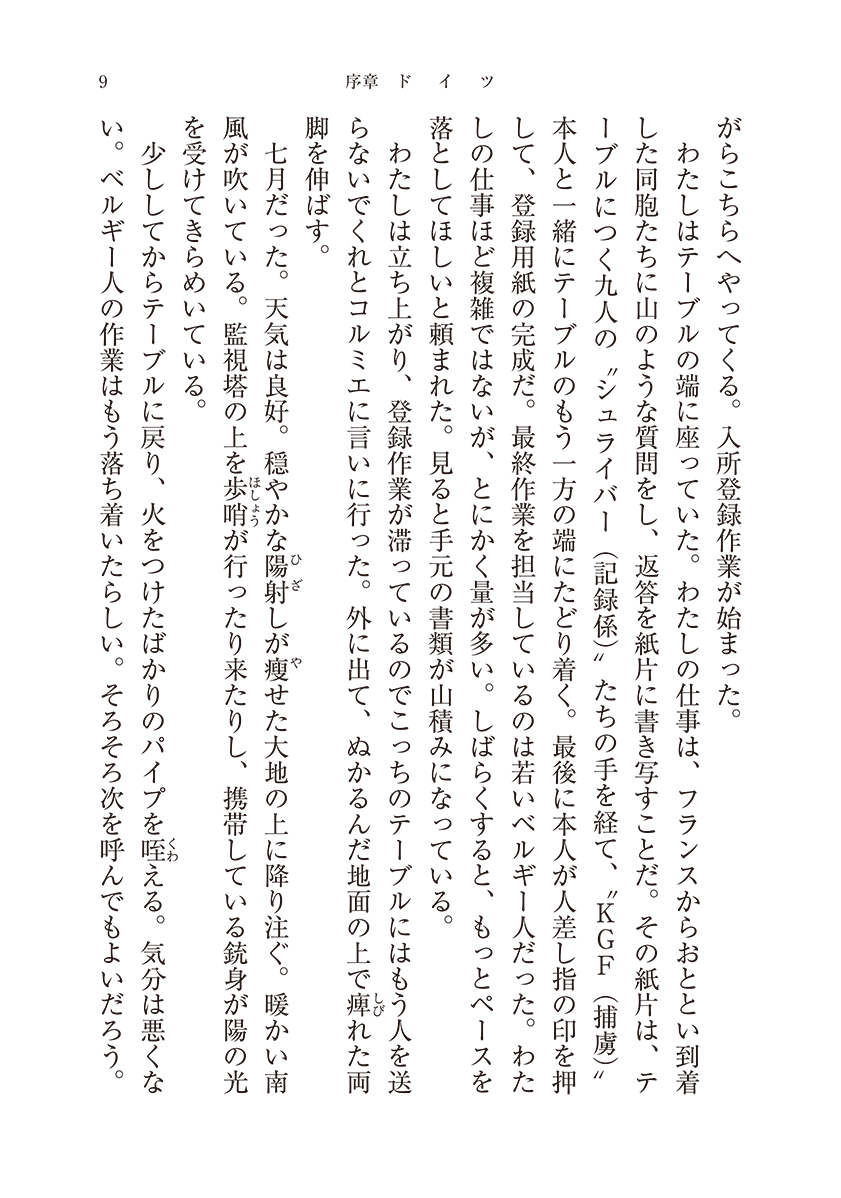 9
序章　ドイツ
がらこちらへやってくる。入所登録作業が始まった。
　わたしはテーブルの端に座っていた。わたしの仕事は、フランスからおととい到着
した同胞たちに山のような質問をし、返答を紙片に書き写すことだ。その紙片は、テ
ーブルにつく九人の〝シュライバー（記録係）〟たちの手を経て、〝KGF（捕虜）〟
本人と一緒にテーブルのもう一方の端にたどり着く。最後に本人が人差し指の印を押
して、登録用紙の完成だ。最終作業を担当しているのは若いベルギー人だった。わた
しの仕事ほど複雑ではないが、とにかく量が多い。しばらくすると、もっとペースを
落としてほしいと頼まれた。見ると手元の書類が山積みになっている。
　わたしは立ち上がり、登録作業が滞っているのでこっちのテーブルにはもう人を送
らないでくれとコルミエに言いに行った。外に出て、ぬかるんだ地面の上で痺しびれた両
脚を伸ばす。
　七月だった。天気は良好。穏やかな陽射ひざしが痩やせた大地の上に降り注ぐ。暖かい南
風が吹いている。監視塔の上を歩哨ほしょうが行ったり来たりし、携帯している銃身が陽の光
を受けてきらめいている。
　少ししてからテーブルに戻り、火をつけたばかりのパイプを咥くわえる。気分は悪くな
い。ベルギー人の作業はもう落ち着いたらしい。そろそろ次を呼んでもよいだろう。